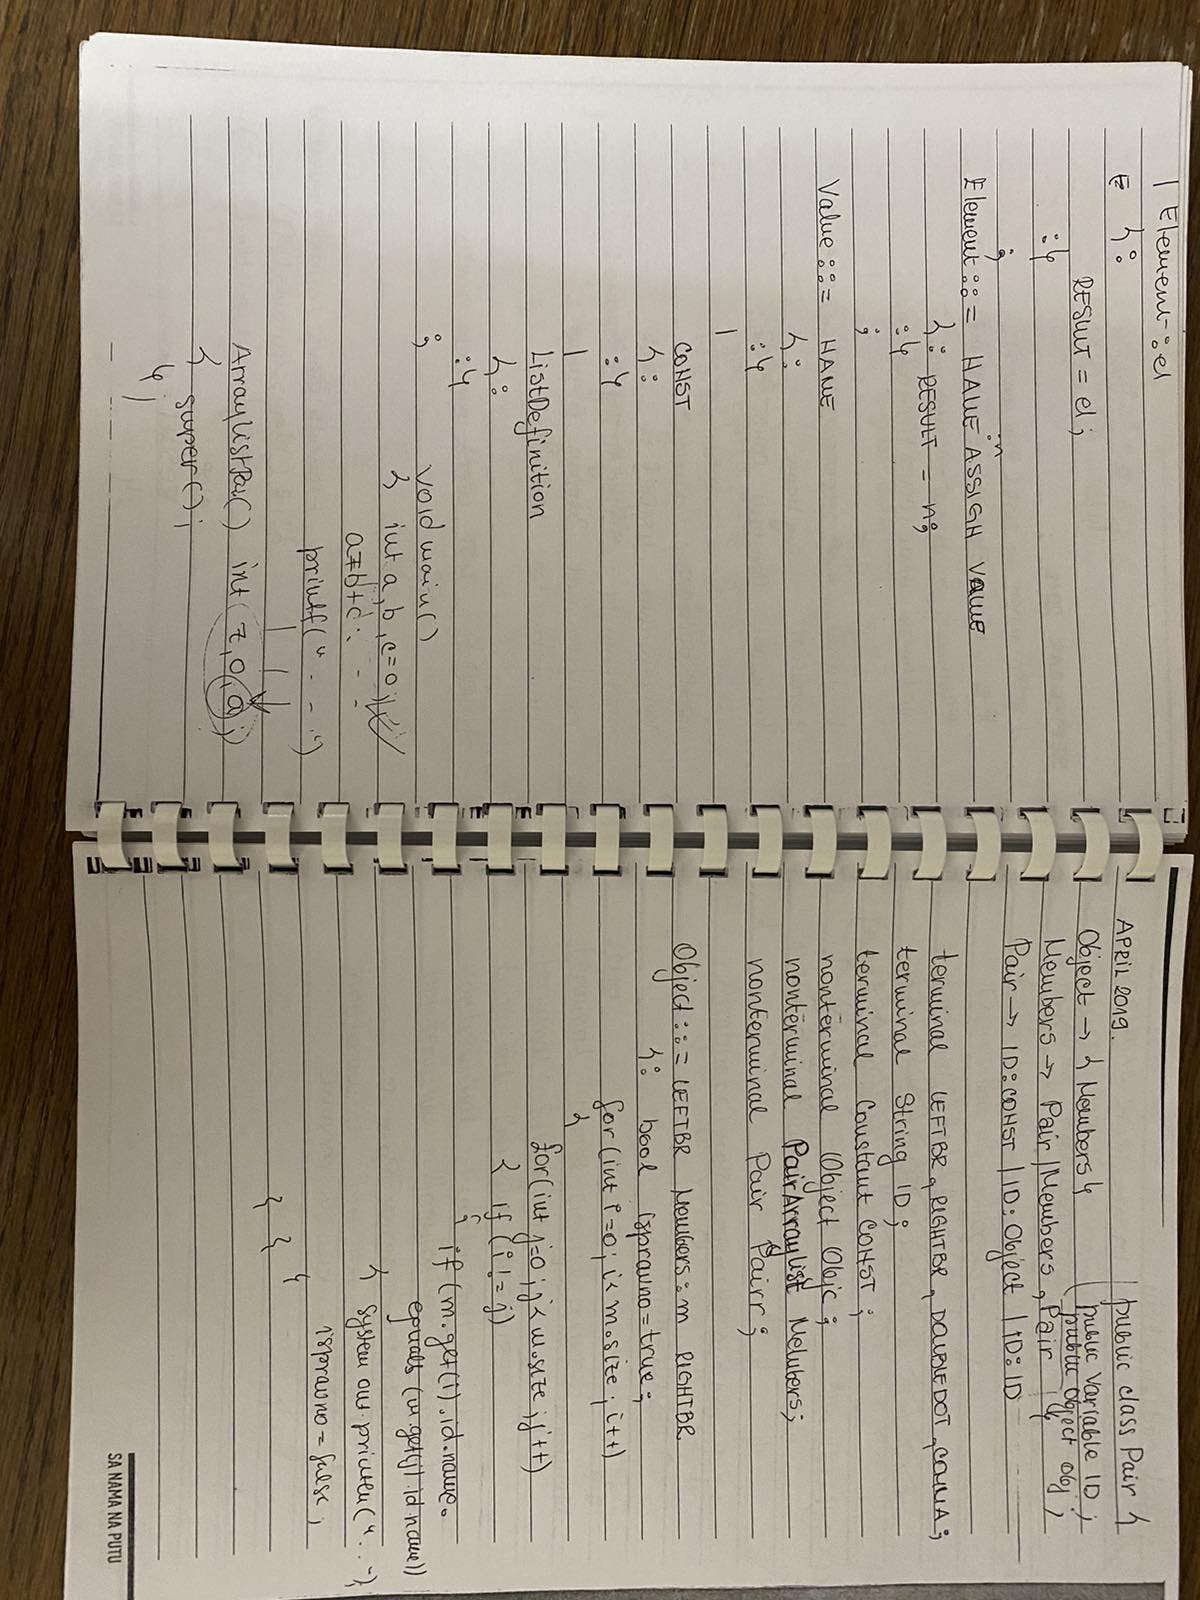 | Element:el
{:
RESULT = el;
:}
;
Element ::= NAME:n ASSIGN VALUE
{: RESULT = n;
:}
;
Value ::= NAME
{:
:}
|
CONST
{:
:}
|
ListDefinition
{:
:}
;
void main()
{ int a, b, c=0;
a=b+c;
printf("...")
ArrayListPar() int(7,0,a;)
{ super();
}
APRIL 2019.
Object → { Members }
Members → Pair | Members, Pair
Pair → ID:CONST | ID:Object | ID:ID
public class Pair {
public Variable ID;
public Object obj;
}
terminal LEFTBR, RIGHTBR, DOUBLEDOT, COMMA;
terminal String ID;
terminal Constant CONST;
nonterminal Object Objc;
nonterminal PairArrayList Members;
nonterminal Pair Pairr;
Object ::= LEFTBR Members:m RIGHTBR
{: bool ispravno=true;
for(int i=0; i<m.size; i++)
{
for(int j=0; j<m.size; j++)
{ if(i!=j)
{
if(m.get(i).id.name.
equals(m.get(j).id.name))
{ System.out.println("...");
ispravno=false;
}
}
}
SA NAMA NA PUTU